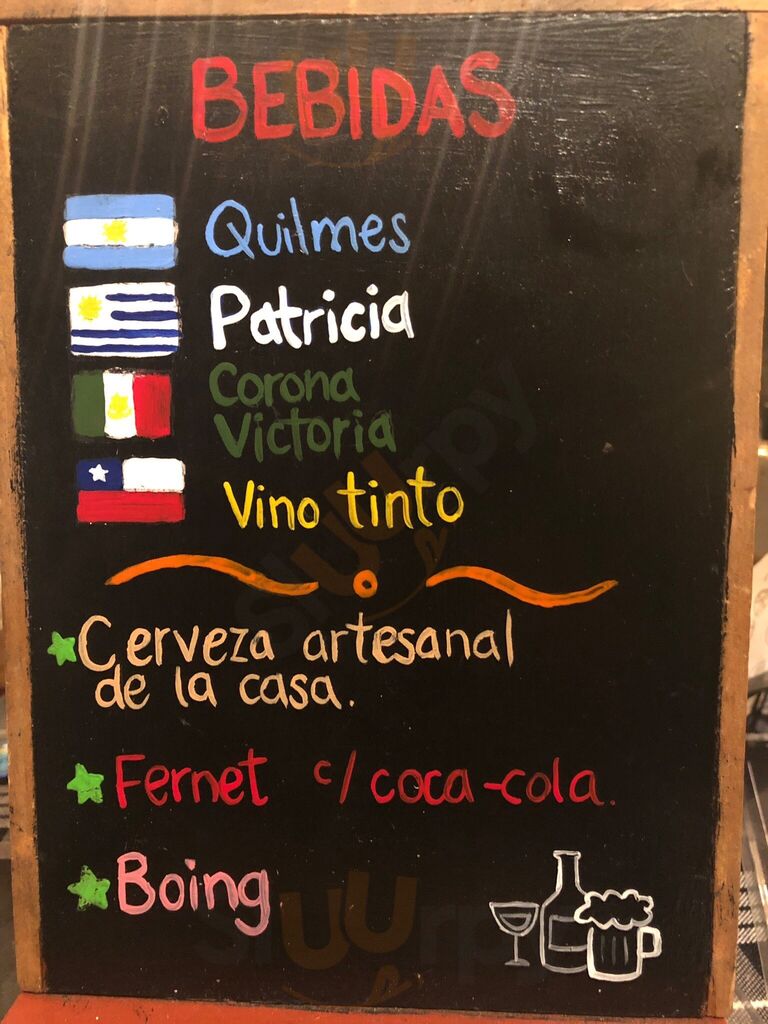 BEBIDAS
Quilmes
Patricia
Corona
Victoria
Vino tinto
Cerveza artesanal
de la casa.
Fernet c/ coca-cola.
Boing
sluurpy
sluurpy